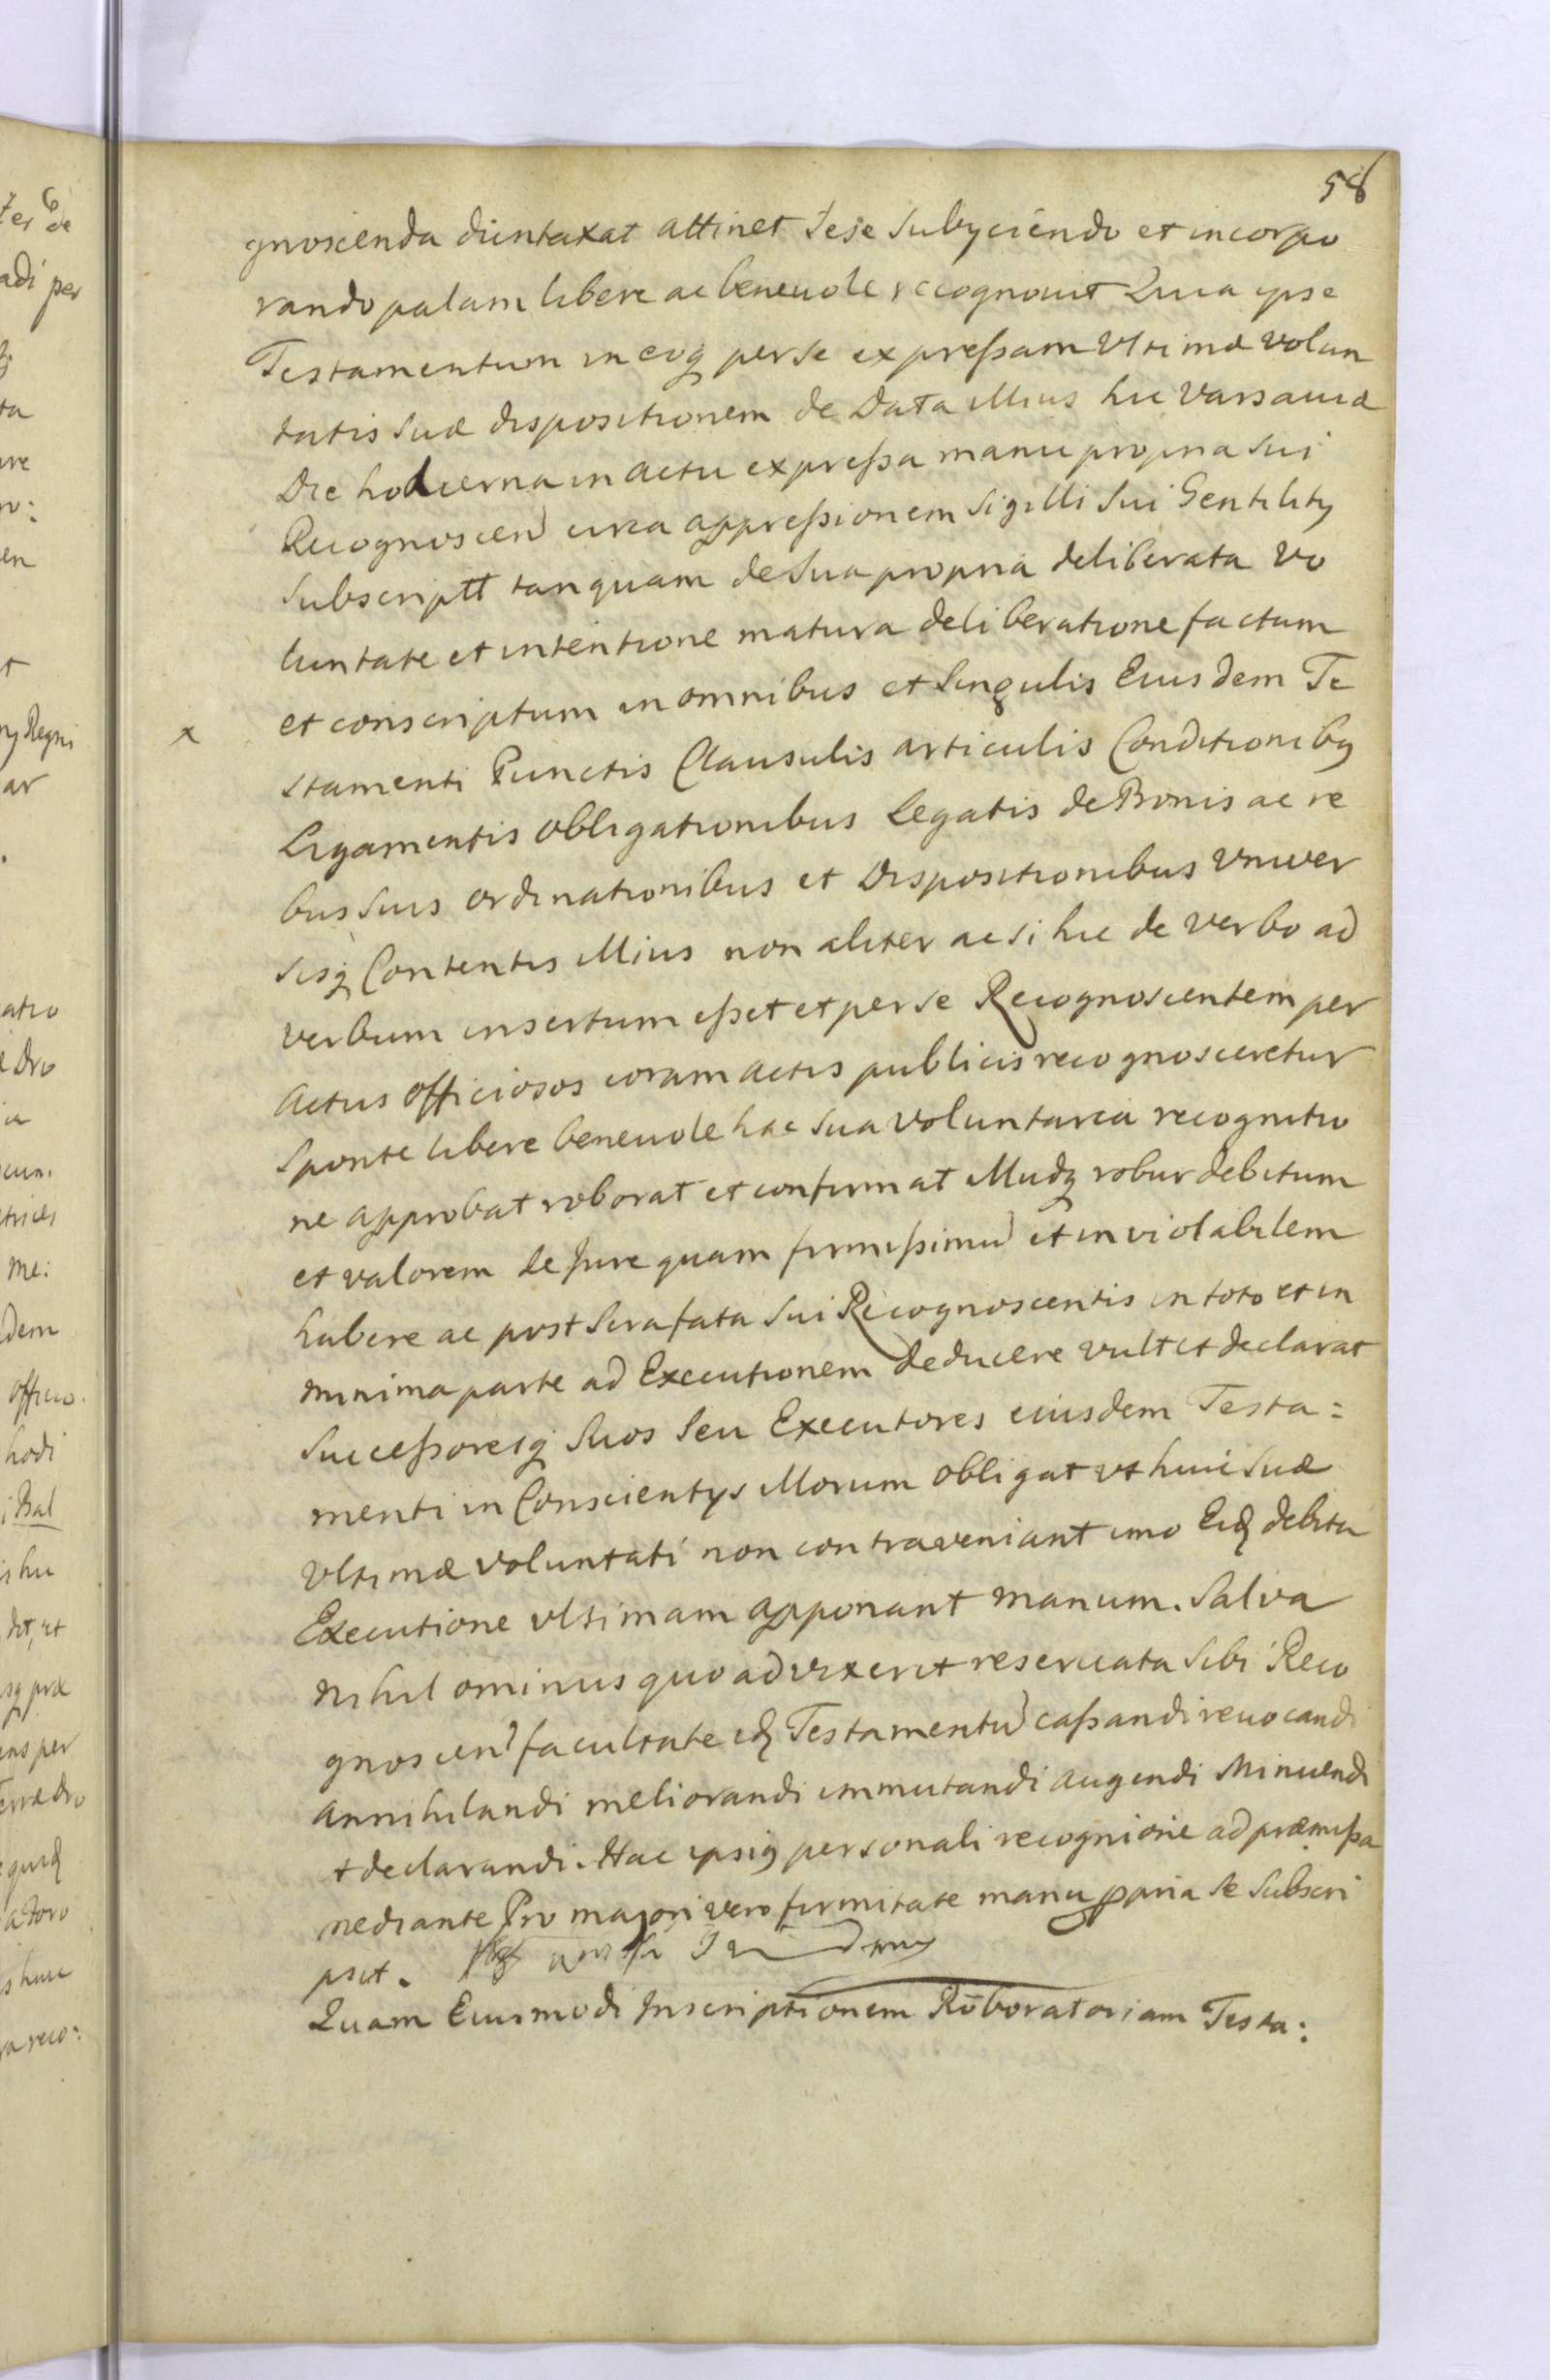 58
gnoscenda duntaxat attinet sese subyciendo et incorpo
rando palam libere ac beneuole recognouit Quia ipse
Testamentum in eoq per se expreßam Vltimæ volun
tatis suæ dispositionem de Data illius hic Varsauiæ
Die hodierna in actu expreßa manu propria sui
Recognoscen circa appreßionem Sigilli sui Gentility
Subscriptt tanquam de sua propria deliberata vo
luntate et intentione matura deliberatione factum
et conscriptum in omnibus et singulis Eiusdem Te
x
stamenti Punctis Clausulis articulis Conditionibq
Ligamentis obligationibus Legatis de Bonis ac re
bus suis ordinationibus et Dispositionibus Vniver
sisq Contentis illius non aliter ac si hic de verbo ad
verbum insertum eßet et per se Recognoscentem per
actus officiosos coram actis publicis recognosceretur
Sponte libere beneuole hac sua voluntaria recognitio
ne approbat roborat et confirmat illudq robur debitum
et valorem de Jure quam firmißimu et inviolabilem
habere ac post sera fata sui Recognoscentis in toto et in
minima parte ad Executionem deducere vult et declarat
Succeßoresq suos seu Executores eiusdem Testa:
menti in Conscientys illorum obligat vt huic suæ
Vltimæ voluntati non contraveniant imo Eid debita
Executione vltimam apponant manum. Salva
nihil ominus quo ad vixerit reseruata sibi Reco
gnoscen facultate id Testamentu caßandi reuocandi
annihilandi meliorandi immutandi augendi Minuendi
t declarandi. Hac ipsiq personali recognione ad præmißa
mediante Pro majori vero firmitate manu ppria se subscri
psit.
Quam Eiusmodi Inscriptionem Roboratoriam Testa: